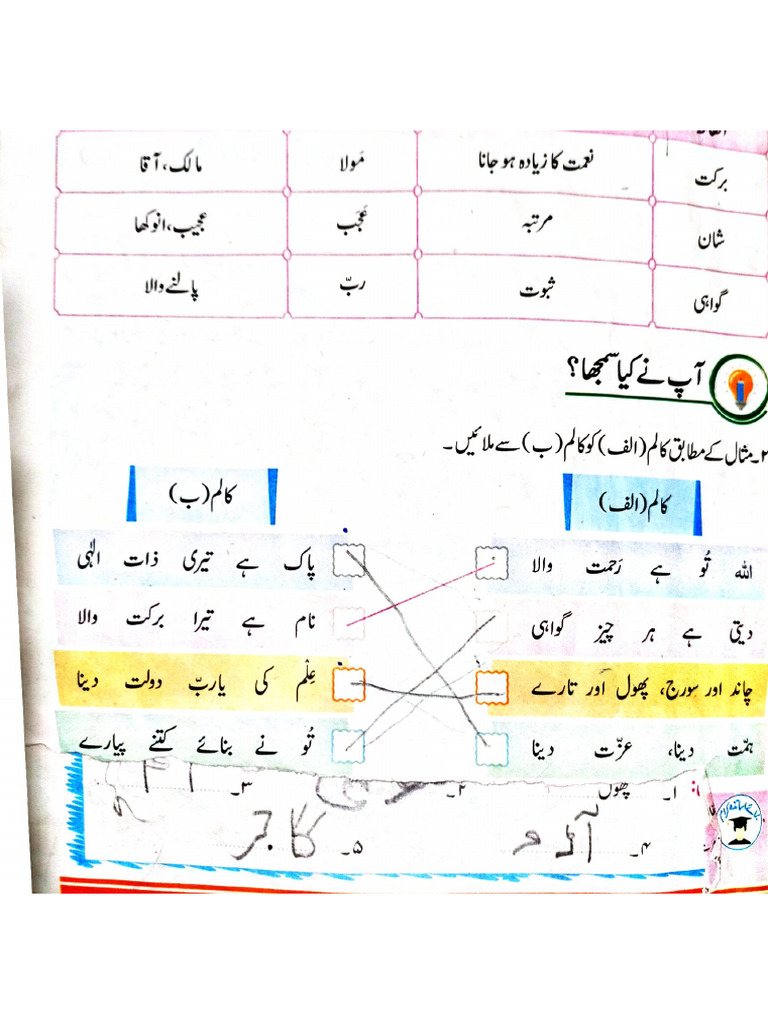 برکت نعمت کا زیادہ ہو جانا مَولا مالک، آقا
شان مرتبہ عَجَب عجیب، انوکھا
گواہی ثبوت ربّ پالنے والا
آپ نے کیا سمجھا؟
۲۔ مثال کے مطابق کالم (الف) کو کالم (ب) سے ملائیں۔
کالم (الف) کالم (ب)
اللہ تُو ہے رَحمت والا پاک ہے تیری ذات الٰہی
دیتی ہے ہر چیز گواہی نام ہے تیرا برکت والا
چاند اور سورج، پھول اور تارے عِلْم کی یاربّ دولت دینا
ہمّت دینا، عزّت دینا تُو نے بنائے کتنے پیارے
۱۔ پھول ۲۔ ۳۔
۴۔ ۵۔ گاجر